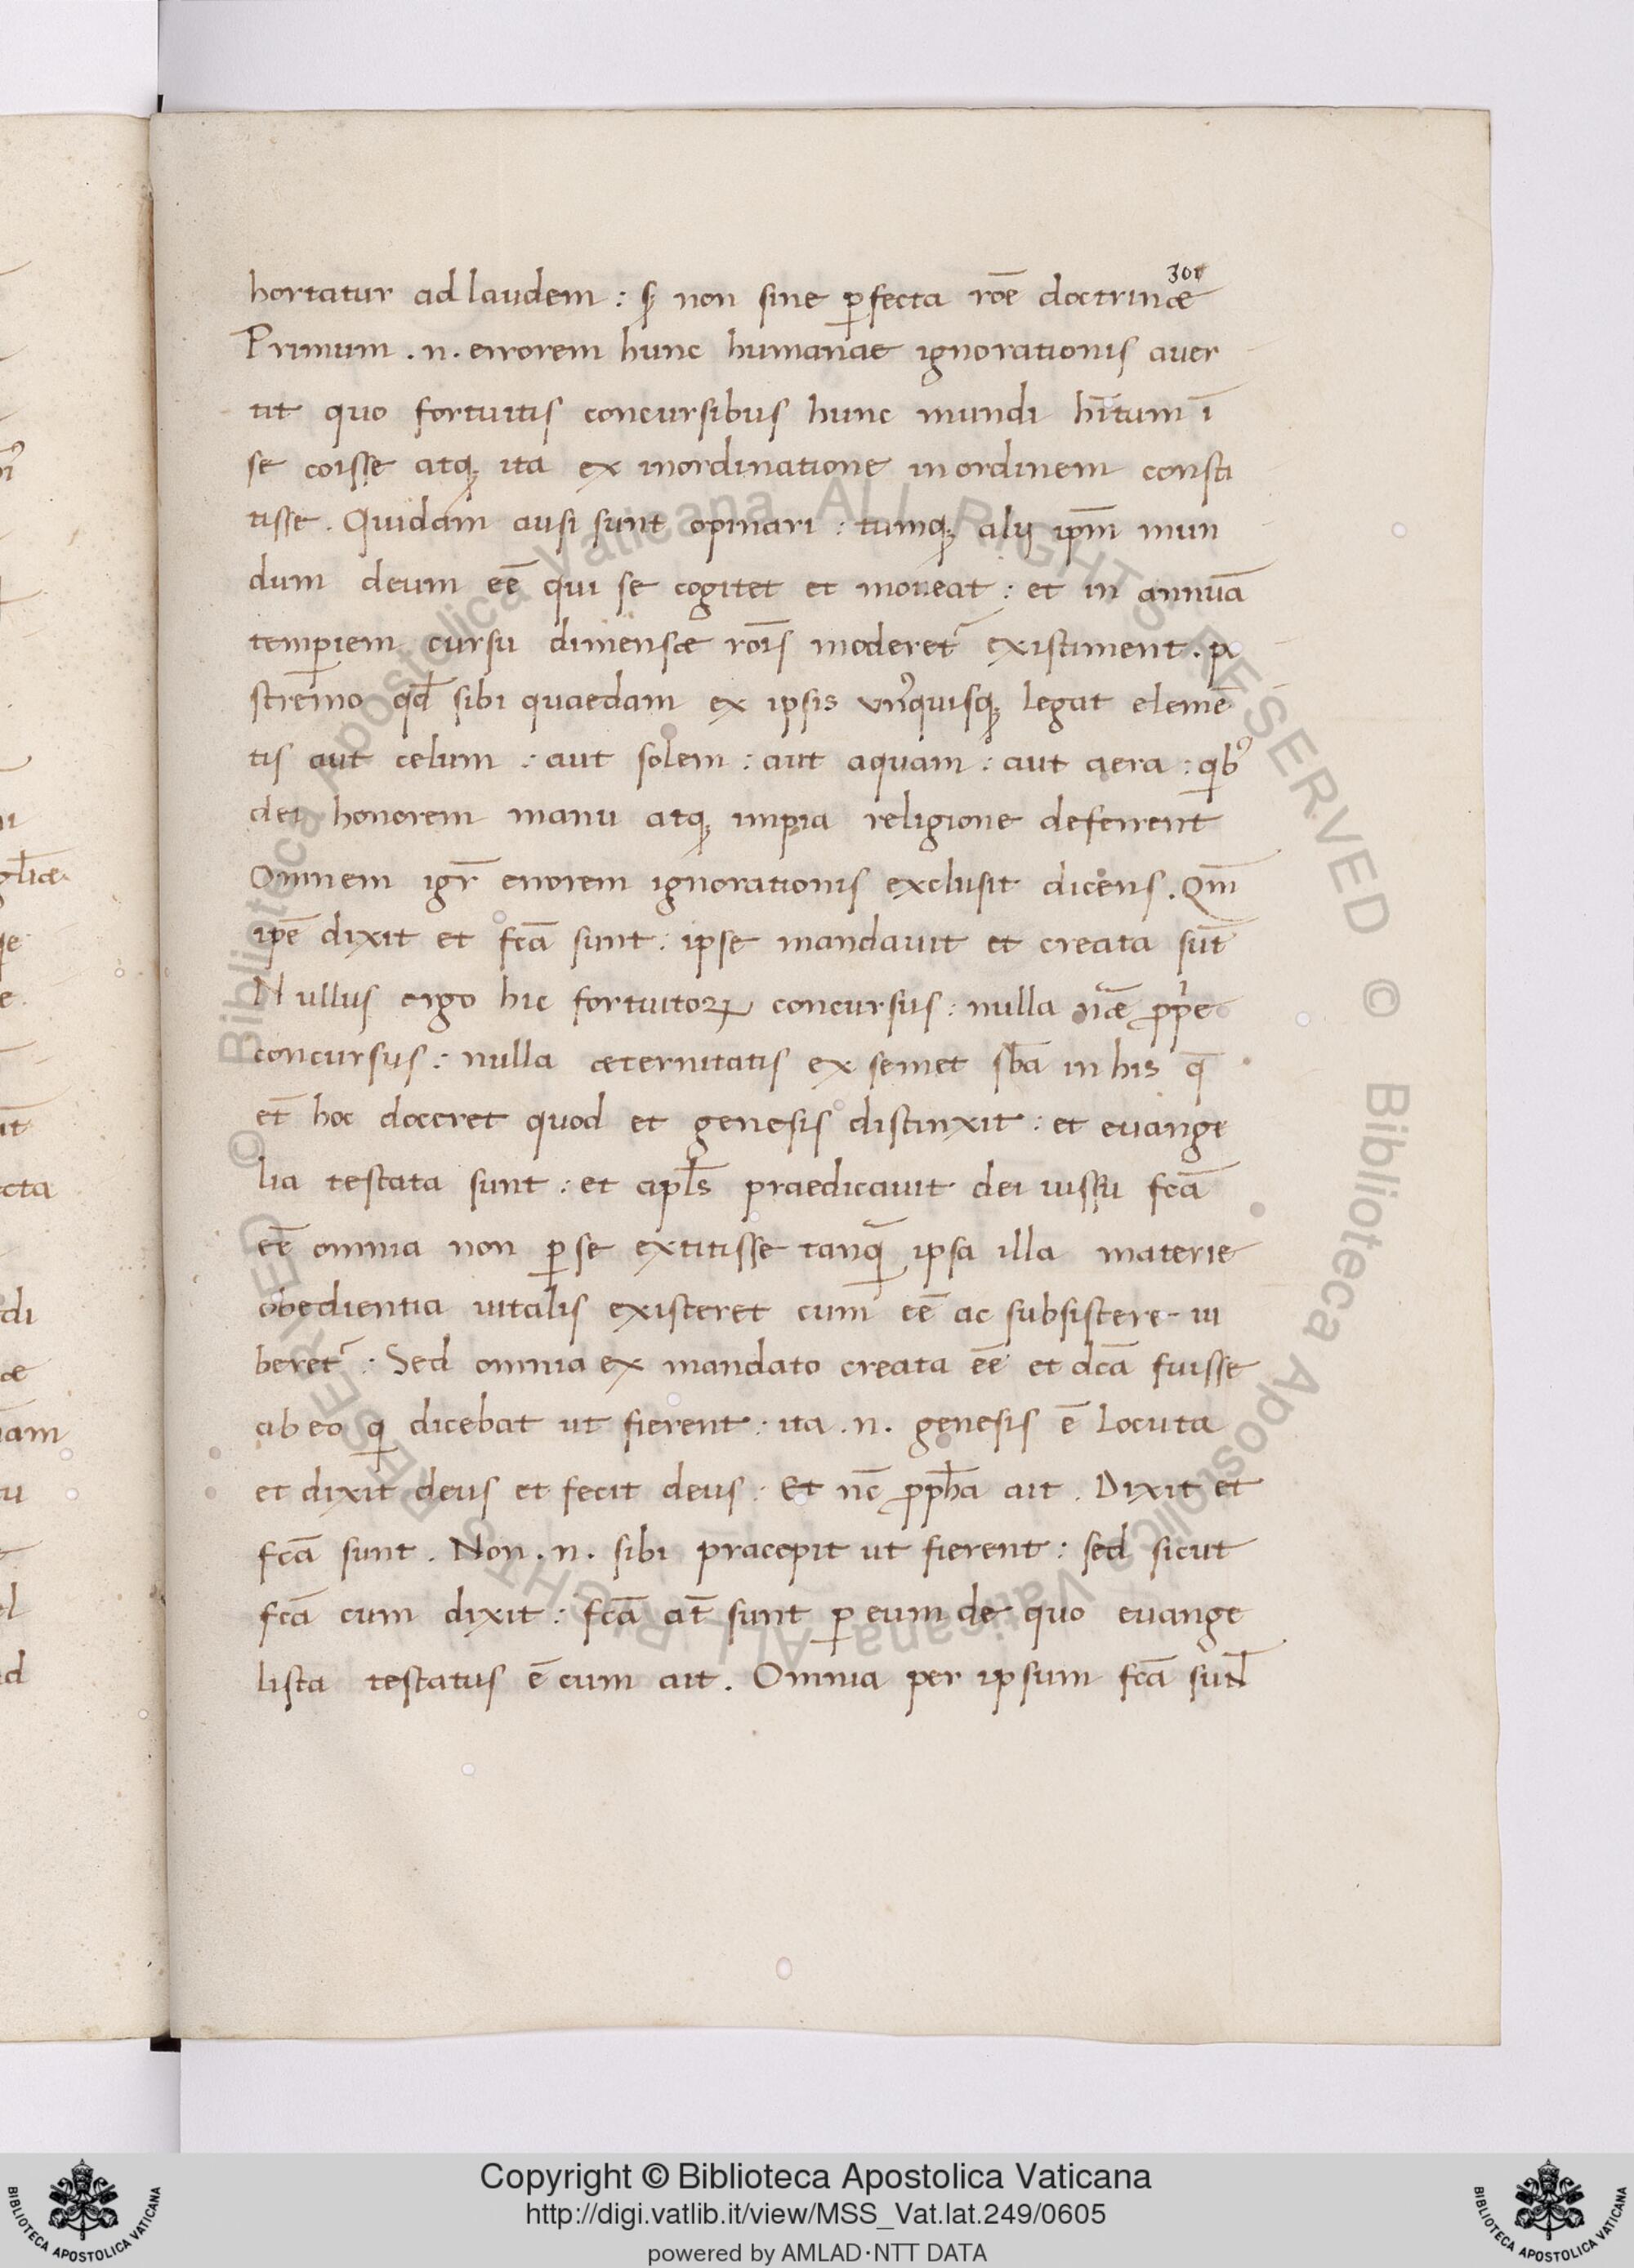 301
hortatur ad laudem : s; non sine ꝑfecta rōe doctrinæ
Primum . n . errorem hunc humanae ignorationis auer
tit quo fortuitis concursibus hunc mundi hītum ī
se coisse atq; ita ex inordinatione in ordinem consti
tisse . Quidam ausi sunt opinari : tumq; alij ip̄m mun
dum deum eē qui se cogitet et moueat : et in annuā
temperiem cursu dimensæ rōis moderet᷑ existiment . po
stremo qd̄ sibi quaedam ex ipsis vnꝰquisq; legat elemē
tis aut celum : aut solem : aut aquam : aut aera : qibꝰ
dei honorem manu atq; impia religione deferrent
Omnem igr̄ errorem ignorationis exclusit dicens . Qm̄
ip̄e dixit et fcā sunt : ipse mandauit et creata sūt
Nullus ergo hic fortuitoꝝ concursus : nulla nāe ꝓpͥe
concursus : nulla æternitatis ex semet sb̄a in his q̄
et̄ hoc doceret quod et genesis distinxit : et euange
lia testata sunt : et apl̄s praedicauit dei iussu fcā
eē omnia non ꝑ se extitisse tanq̄ ipsa illa materie
obedientia uitalis existeret cum eē ac subsistere iu
beret᷑ : Sed omnia ex mandato creata eē et dcā fuisse
ab eo qi dicebat ut fierent : ita . n . genesis ē locuta
et dixit deus et fecit deus : Et nc̄ ꝓph̄a ait . Dixit et
fcā sunt . Non . n . sibi praecepit ut fierent : sed sicut
fcā cum dixit : fcā at̄ sunt ꝑ eum de quo euange
lista testatus ē cum ait . Omnia per ipsum fcā sunt
Copyright © Biblioteca Apostolica Vaticana
http://digi.vatlib.it/view/MSS_Vat.lat.249/0605
powered by AMLAD·NTT DATA
BIBLIOTECA APOSTOLICA VATICANA
BIBLIOTECA APOSTOLICA VATICANA
© Biblioteca Apostolica Vaticana ALL RIGHTS RESERVED © Biblioteca Apostolica Vaticana ALL RIGHTS RESERVED